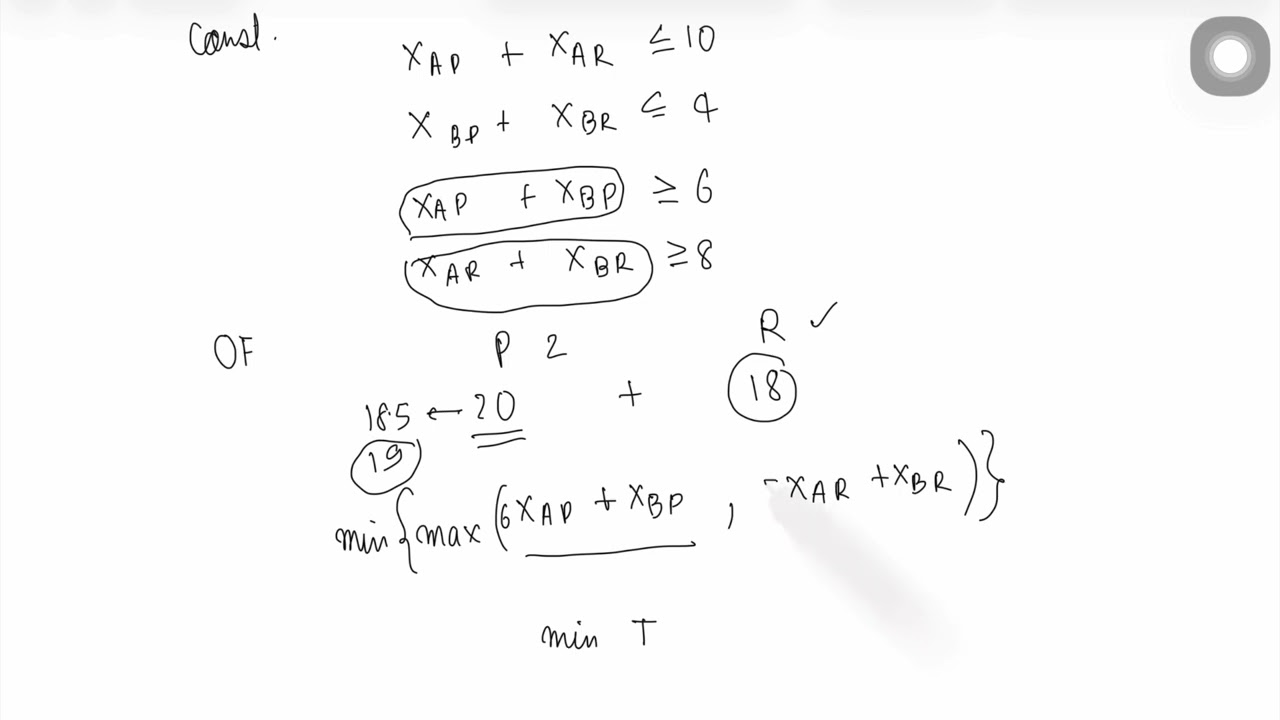 Const.
X_AP + X_AR ≤ 10
X_BP + X_BR ≤ 4
X_AP + X_BP ≥ 6
X_AR + X_BR ≥ 8
OF P 2 R ✓
18.5 ← 20 + 18
19
min { max ( 6X_AP + X_BP , -X_AR + X_BR ) }
min T